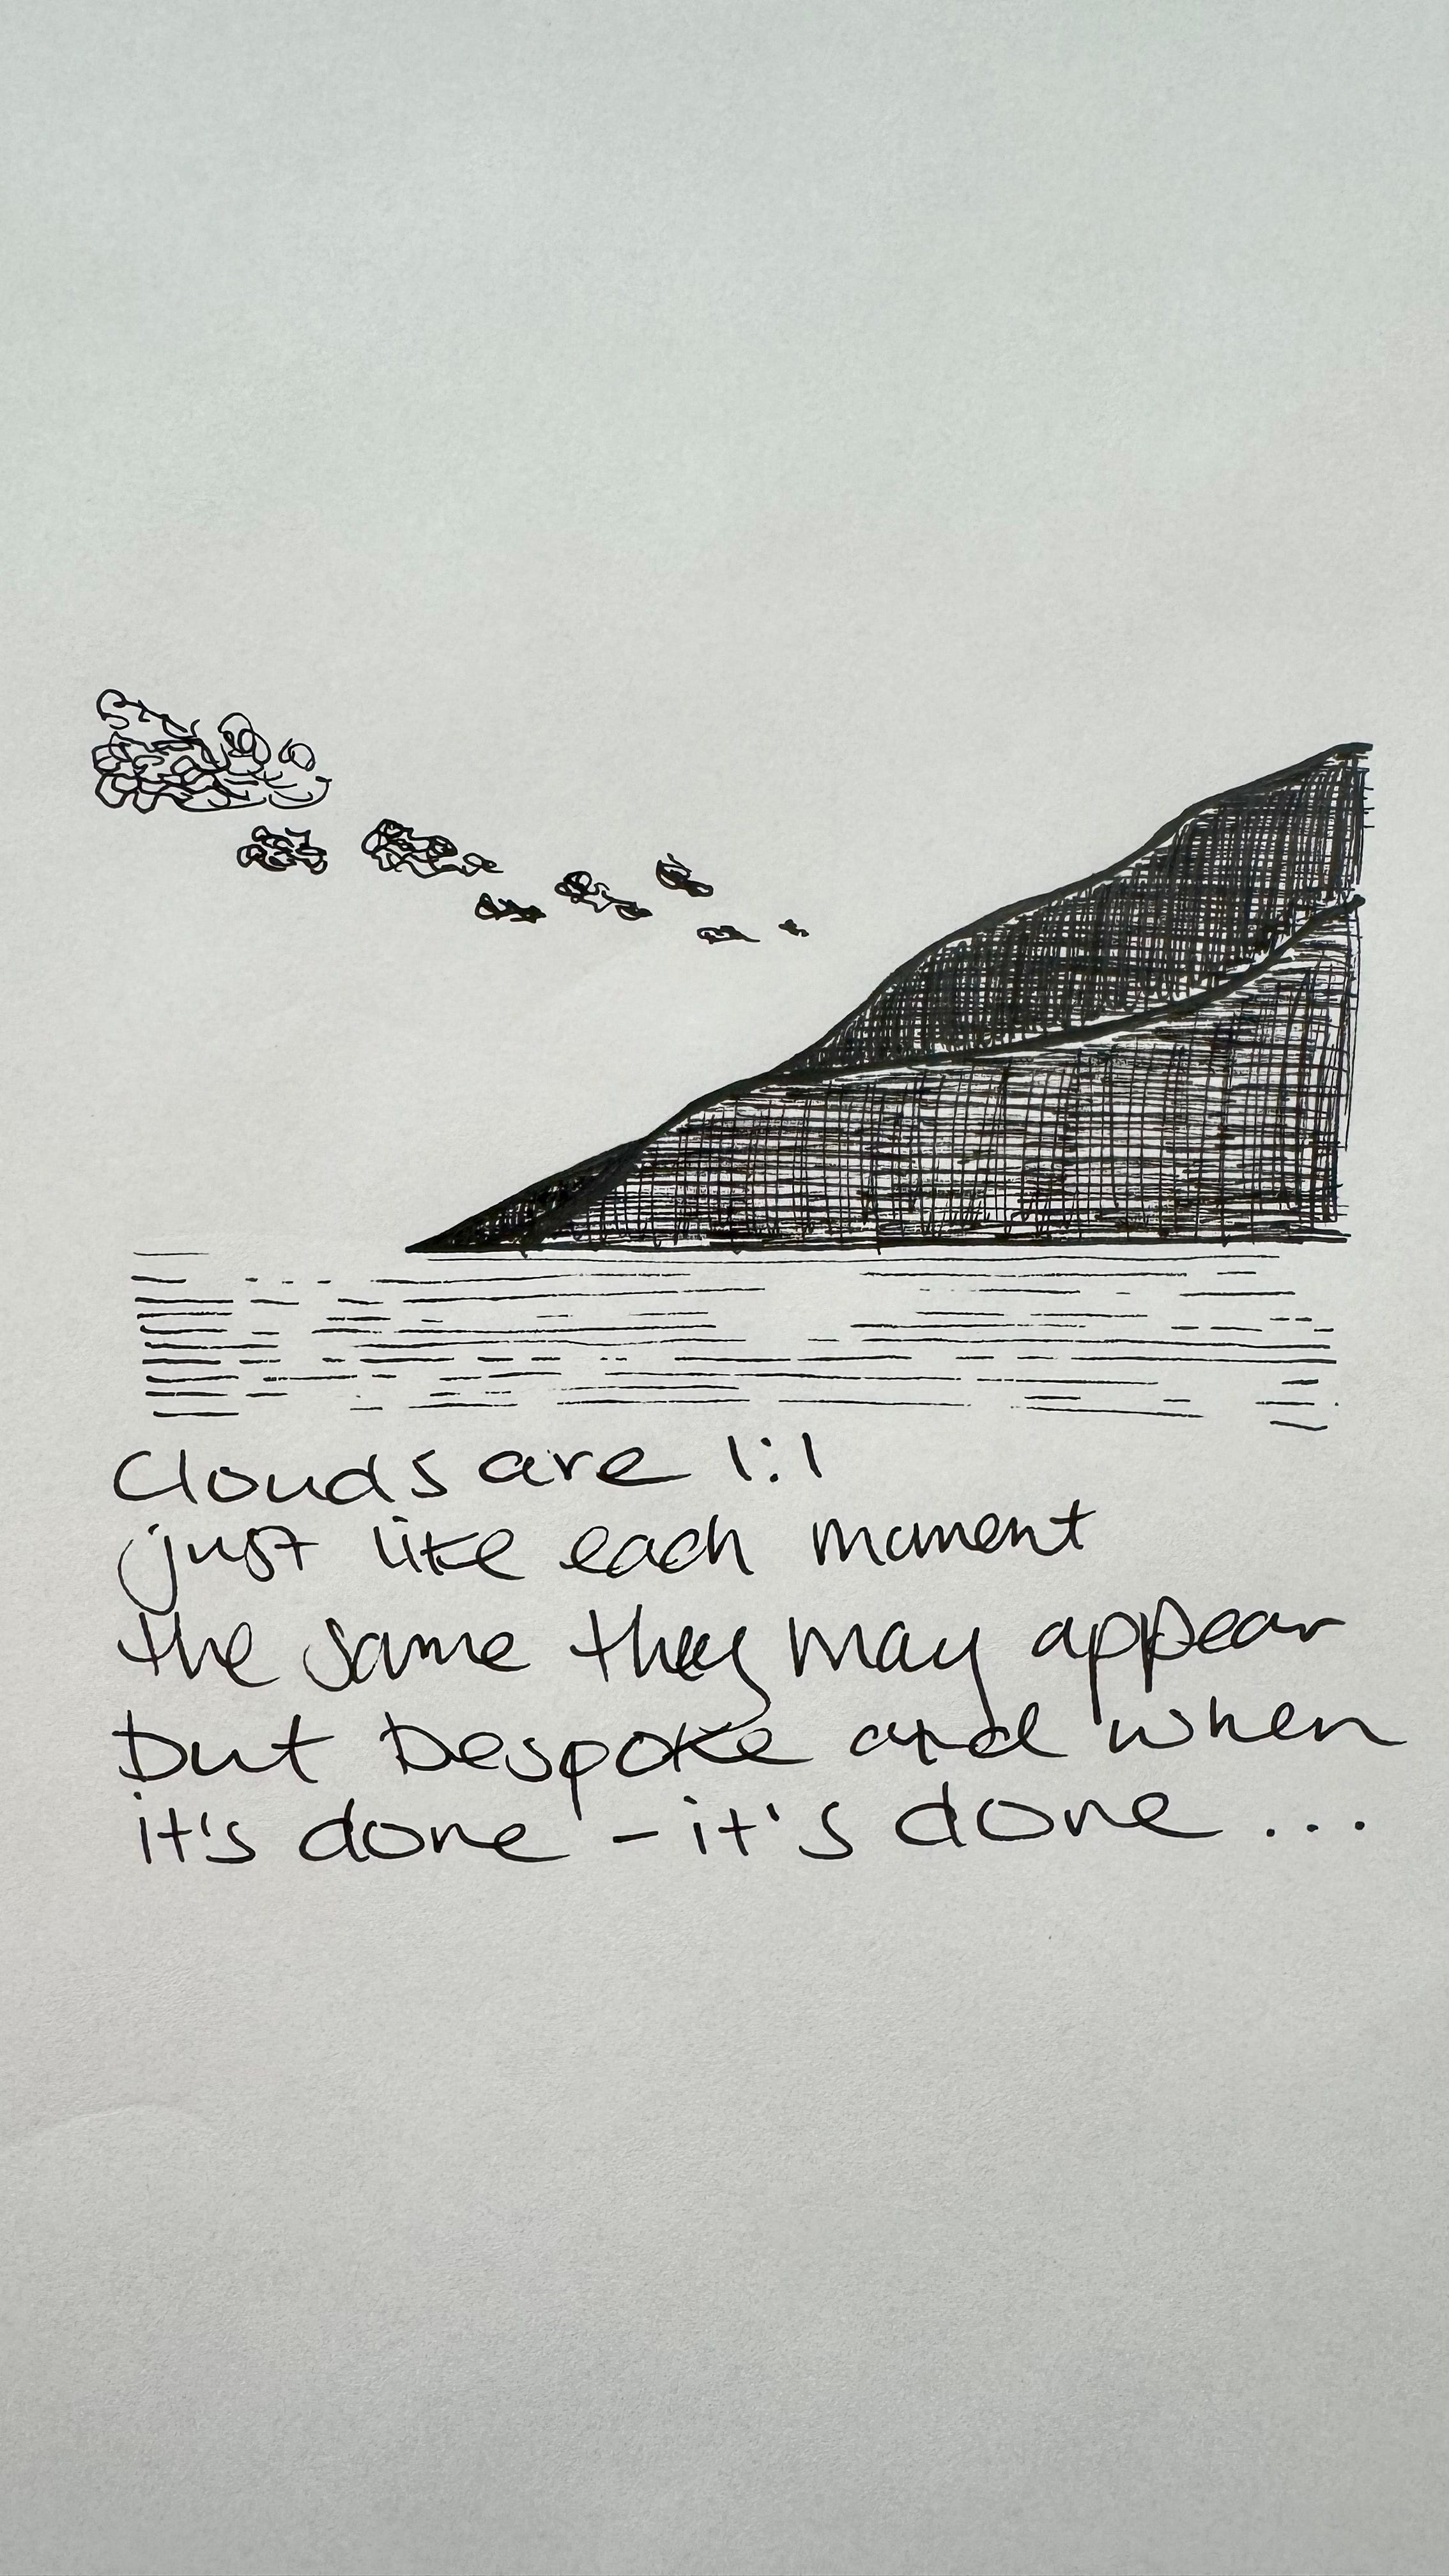 Clouds are 1:1
just like each moment
the same they may appear
but bespoke and when
it's done - it's done...